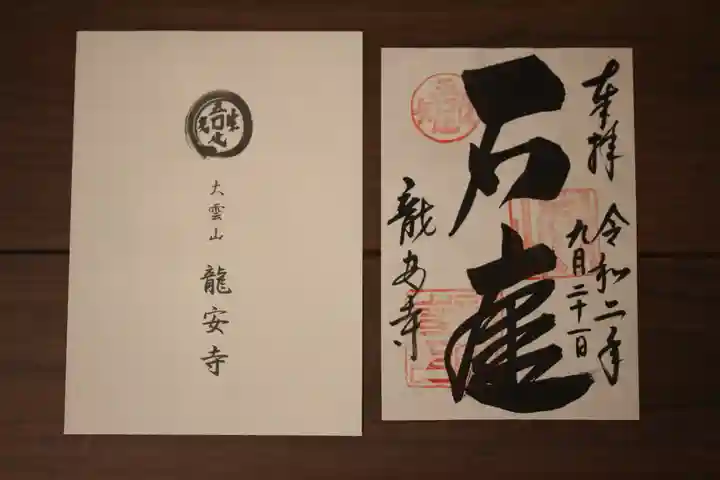 吾唯足知
大雲山
龍安寺
奉拝
令和二年
九月二十一日
石庭
龍安寺